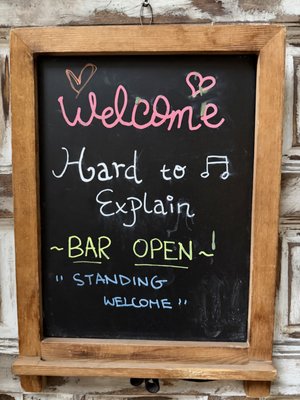 Welcome
Hard to
Explain
~BAR OPEN~!
"STANDING
WELCOME"